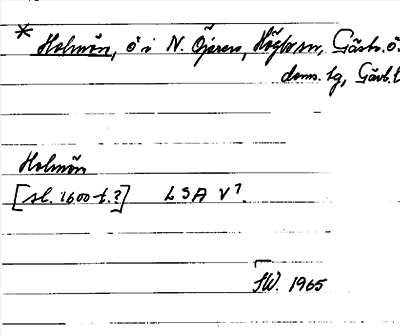 * Holmön, ö i N. Öjaren, Högbo sn, Gästr. ö.
doms. tg, Gävl. l
Holmön
[sl. 1600-t.?] LSA V?.
SW. 1965